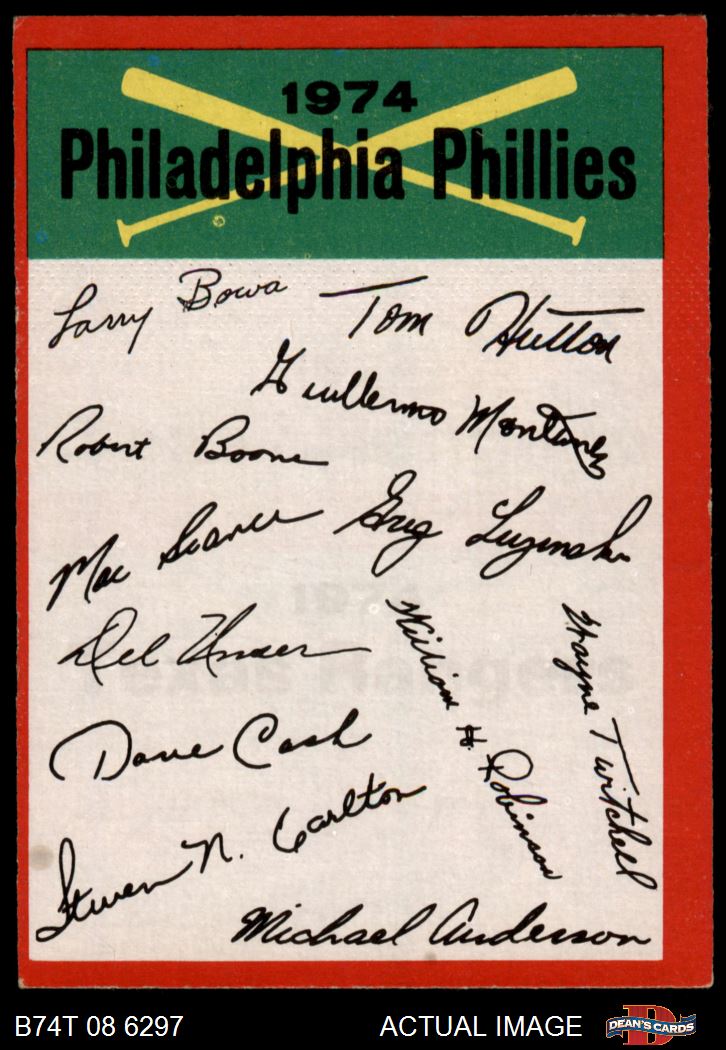 1974
Philadelphia Phillies
Larry Bowa
Tom Hutton
Guillermo Montanez
Robert Boone
Mac Scarce
Greg Luzinski
Del Unser
William H. Robinson
Wayne Twitchell
Dave Cash
Steven N. Carlton
Michael Anderson
B74T 08 6297
ACTUAL IMAGE
D
DEAN'S CARDS